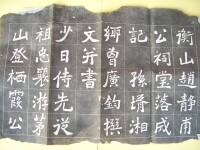 衡山趙靜甫
公祠堂落成
記孫壻湘
鄉曾廣鈞撰
文并書
少日侍先從
祖忠襄游茅
山登栖霞公